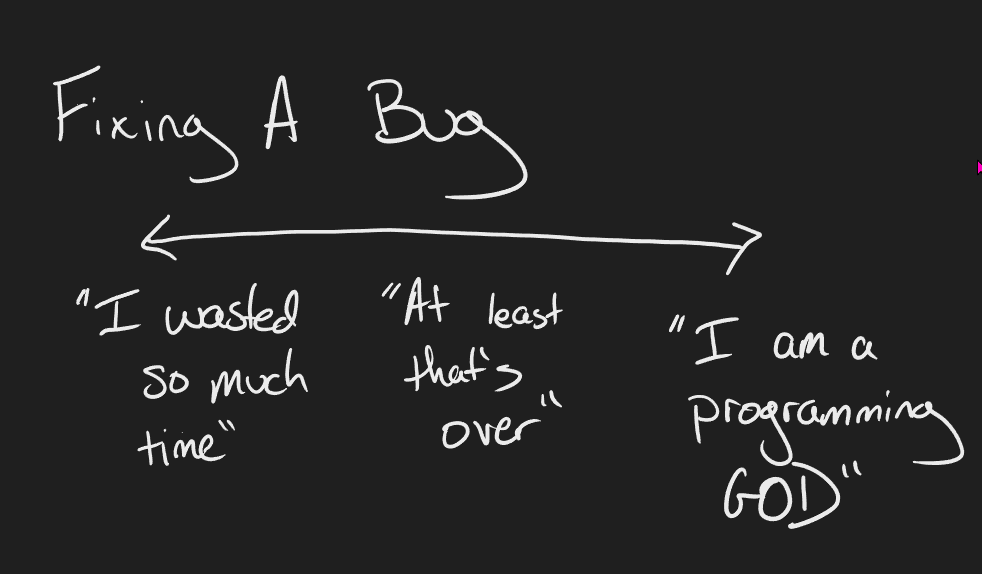 Fixing A Bug
"I wasted
so much
time"
"At least
that's
over"
"I am a
programming
GOD"